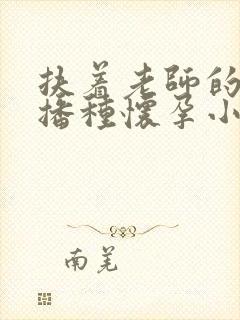 扶着老師的
播種懷孕小
南羌